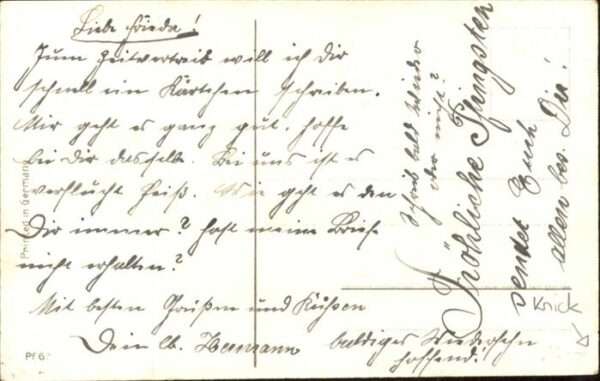 Liebe Frieda!
Zum Zeitvertreib will ich Dir
schnell ein Kärtchen schreiben.
Mir geht es ganz gut, hoffe
bei Dir dasselbe. Bei uns ist es
verflucht heiß. Wie geht es den
Dir immer? Hast meine Briefe
nicht erhalten?
Mit besten Grüßen und Küssen
Dein lb. Hermann
baldiges Wiedersehn
hoffend!
Schreib bald wieder
oder nicht?
Fröhliche Pfingsten
sendet Euch
allen bes. Dir!
Knick
Printed in Germany
Pf 6